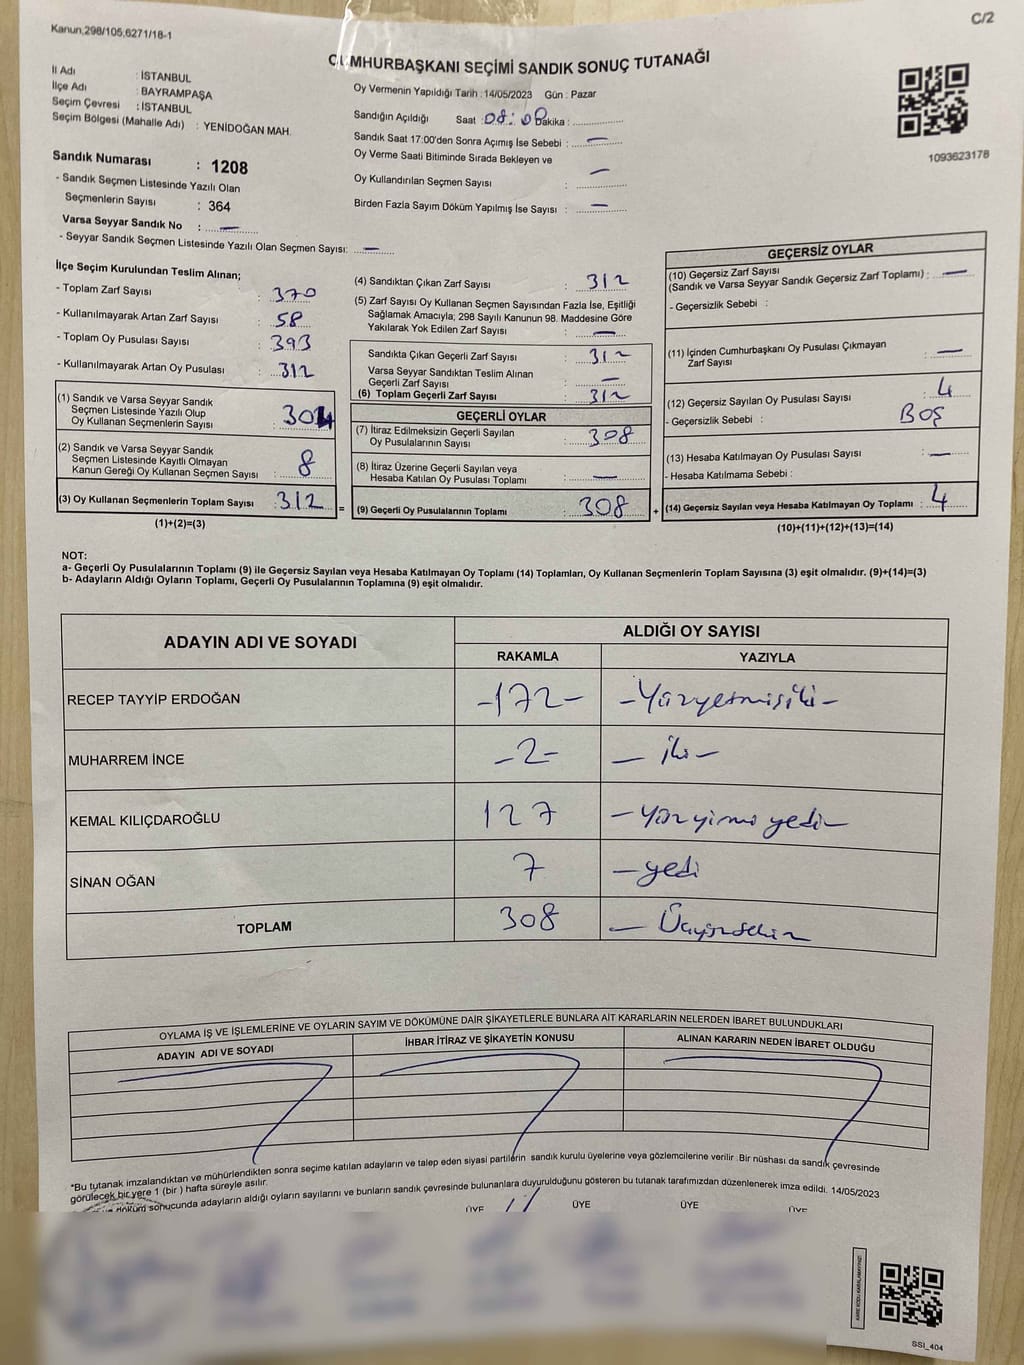 C/2
Kanun.298/105,6271/18-1
CUMHURBAŞKANI SEÇİMİ SANDIK SONUÇ TUTANAĞI
İl Adı : İSTANBUL
İlçe Adı : BAYRAMPAŞA
Seçim Çevresi : İSTANBUL
Seçim Bölgesi (Mahalle Adı) : YENİDOĞAN MAH.
Sandık Numarası : 1208
- Sandık Seçmen Listesinde Yazılı Olan
Seçmenlerin Sayısı : 364
Varsa Seyyar Sandık No : —
- Seyyar Sandık Seçmen Listesinde Yazılı Olan Seçmen Sayısı: —
Oy Vermenin Yapıldığı Tarih :14/05/2023 Gün : Pazar
Sandığın Açıldığı Saat :08:00 Dakika :
Sandık Saat 17:00'den Sonra Açımış İse Sebebi : —
Oy Verme Saati Bitiminde Sırada Bekleyen ve
Oy Kullandırılan Seçmen Sayısı : —
Birden Fazla Sayım Döküm Yapılmış İse Sayısı : —
1093623178
İlçe Seçim Kurulundan Teslim Alınan;
- Toplam Zarf Sayısı : 370
- Kullanılmayarak Artan Zarf Sayısı : 58
- Toplam Oy Pusulası Sayısı : 393
- Kullanılmayarak Artan Oy Pusulası : 312
(1) Sandık ve Varsa Seyyar Sandık
Seçmen Listesinde Yazılı Olup
Oy Kullanan Seçmenlerin Sayısı : 304
(2) Sandık ve Varsa Seyyar Sandık
Seçmen Listesinde Kayıtlı Olmayan
Kanun Gereği Oy Kullanan Seçmen Sayısı : 8
(3) Oy Kullanan Seçmenlerin Toplam Sayısı : 312
(1)+(2)=(3)
(4) Sandıktan Çıkan Zarf Sayısı : 312
(5) Zarf Sayısı Oy Kullanan Seçmen Sayısından Fazla İse, Eşitliği
Sağlamak Amacıyla; 298 Sayılı Kanunun 98. Maddesine Göre
Yakılarak Yok Edilen Zarf Sayısı : —
Sandıkta Çıkan Geçerli Zarf Sayısı : 312
Varsa Seyyar Sandıktan Teslim Alınan
Geçerli Zarf Sayısı : —
(6) Toplam Geçerli Zarf Sayısı : 312
=
GEÇERLİ OYLAR
(7) İtiraz Edilmeksizin Geçerli Sayılan
Oy Pusulalarının Sayısı : 308
(8) İtiraz Üzerine Geçerli Sayılan veya
Hesaba Katılan Oy Pusulası Toplamı : —
(9) Geçerli Oy Pusulalarının Toplamı : 308
+
GEÇERSİZ OYLAR
(10) Geçersiz Zarf Sayısı
(Sandık ve Varsa Seyyar Sandık Geçersiz Zarf Toplamı) : —
- Geçersizlik Sebebi :
(11) İçinden Cumhurbaşkanı Oy Pusulası Çıkmayan
Zarf Sayısı : —
(12) Geçersiz Sayılan Oy Pusulası Sayısı : 4
- Geçersizlik Sebebi : BOŞ
(13) Hesaba Katılmayan Oy Pusulası Sayısı : —
- Hesaba Katılmama Sebebi :
(14) Geçersiz Sayılan veya Hesaba Katılmayan Oy Toplamı : 4
(10)+(11)+(12)+(13)=(14)
NOT:
a- Geçerli Oy Pusulalarının Toplamı (9) ile Geçersiz Sayılan veya Hesaba Katılmayan Oy Toplamı (14) Toplamları, Oy Kullanan Seçmenlerin Toplam Sayısına (3) eşit olmalıdır. (9)+(14)=(3)
b- Adayların Aldığı Oyların Toplamı, Geçerli Oy Pusulalarının Toplamına (9) eşit olmalıdır.
ADAYIN ADI VE SOYADI
ALDIĞI OY SAYISI
RAKAMLA YAZIYLA
RECEP TAYYİP ERDOĞAN -172- -Yüzyetmişiki-
MUHARREM İNCE -2- - iki -
KEMAL KILIÇDAROĞLU 127 -Yüzyirmi yedi-
SİNAN OĞAN 7 -yedi
TOPLAM 308 - Üçyüzsekiz
OYLAMA İŞ VE İŞLEMLERİNE VE OYLARIN SAYIM VE DÖKÜMÜNE DAİR ŞİKAYETLERLE BUNLARA AİT KARARLARIN NELERDEN İBARET BULUNDUKLARI
ADAYIN ADI VE SOYADI İHBAR İTİRAZ VE ŞİKAYETİN KONUSU ALINAN KARARIN NEDEN İBARET OLDUĞU
*Bu tutanak imzalandıktan ve mühürlendikten sonra seçime katılan adayların ve talep eden siyasi partilerin sandık kurulu üyelerine veya gözlemcilerine verilir .Bir nüshası da sandık çevresinde
görülecek bir yere 1 (bir ) hafta süreyle asılır.
döküm sonucunda adayların aldığı oyların sayılarını ve bunların sandık çevresinde bulunanlara duyurulduğunu gösteren bu tutanak tarafımızdan düzenlenerek imza edildi. 14/05/2023
ÜYE ÜYE ÜYE ÜYE
SSI_404